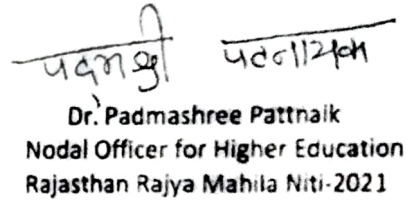 पदमश्री पटनायक
Dr. Padmashree Pattnaik
Nodal Officer for Higher Education
Rajasthan Rajya Mahila Niti-2021